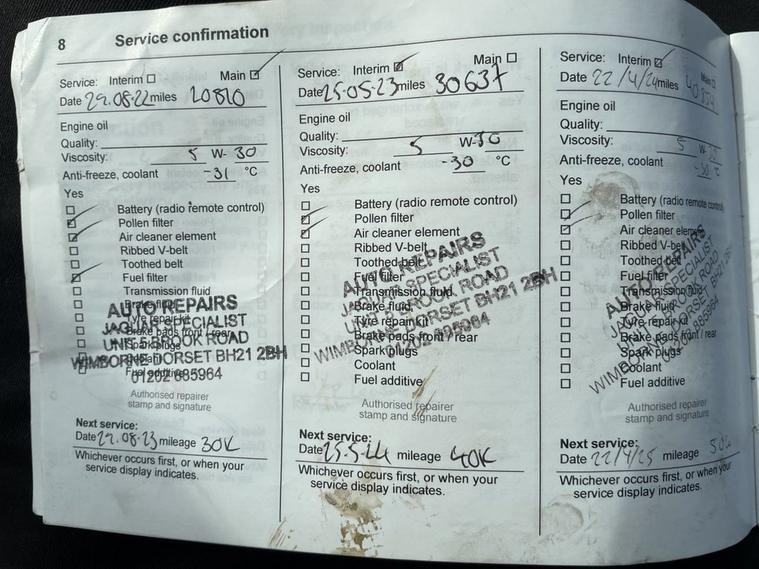 8 Service confirmation
Service: Interim ☐ Main ☑
Date 29.08.22 miles 20810
Engine oil
Quality:
Viscosity: 5 W- 30
Anti-freeze, coolant -31 °C
Yes
Battery (radio remote control)
Pollen filter
Air cleaner element
Ribbed V-belt
Toothed belt
Fuel filter
Transmission fluid
Brake fluid
Tyre repair kit
Brake pads front / rear
Spark plugs
Coolant
Fuel additive
AUTO REPAIRS
JAGUAR SPECIALIST
UNIT 5 BROOK ROAD
WIMBORNE DORSET BH21 2BH
01202 885964
Authorised repairer
stamp and signature
Next service:
Date 29.08.23 mileage 30K
Whichever occurs first, or when your
service display indicates.
Service: Interim ☑ Main ☐
Date 25-05-23 miles 30637
Engine oil
Quality:
Viscosity: 5 W-30
Anti-freeze, coolant -30 °C
Yes
Battery (radio remote control)
Pollen filter
Air cleaner element
Ribbed V-belt
Toothed belt
Fuel filter
Transmission fluid
Brake fluid
Tyre repair kit
Brake pads front / rear
Spark plugs
Coolant
Fuel additive
AUTO REPAIRS
JAGUAR SPECIALIST
UNIT 5 BROOK ROAD
WIMBORNE DORSET BH21 2BH
01202 885964
Authorised repairer
stamp and signature
Next service:
Date 25-5-24 mileage 40K
Whichever occurs first, or when your
service display indicates.
Service: Interim ☑ Main ☐
Date 22/4/24 miles
Engine oil
Quality:
Viscosity: 5 W-
Anti-freeze, coolant -30 °C
Yes
Battery (radio remote control)
Pollen filter
Air cleaner element
Ribbed V-belt
Toothed belt
Fuel filter
Transmission fluid
Brake fluid
Tyre repair kit
Brake pads front / rear
Spark plugs
Coolant
Fuel additive
AUTO REPAIRS
JAGUAR SPECIALIST
UNIT 5 BROOK ROAD
WIMBORNE DORSET BH21 2BH
01202 885964
Authorised repairer
stamp and signature
Next service:
Date 22/4/25 mileage
Whichever occurs first, or when your
service display indicates.